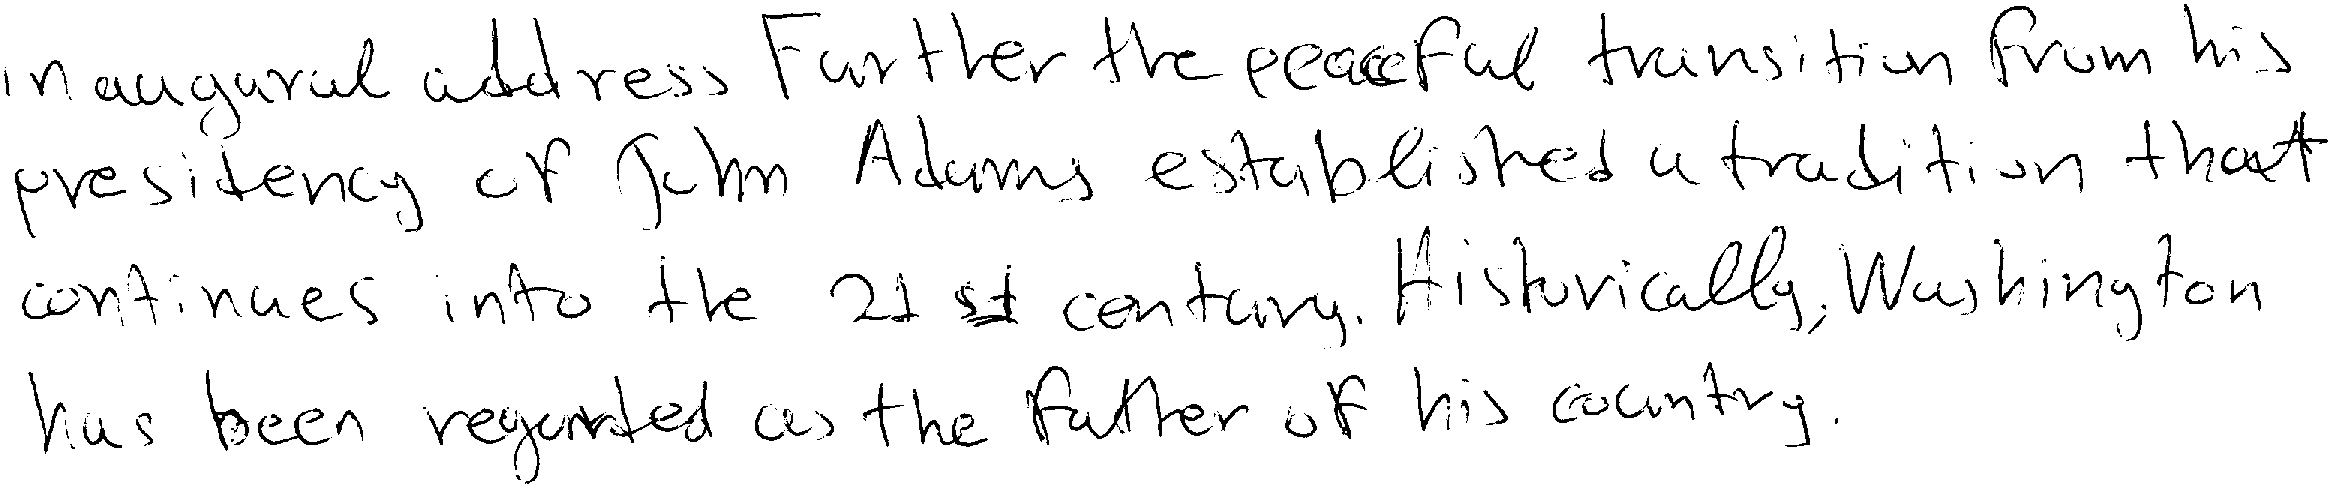 inaugural address Further the peaceful transition from his
presidency of John Adams established a tradition that
continues into the 21 st century. Historically, Washington
has been regarded as the father of his country.